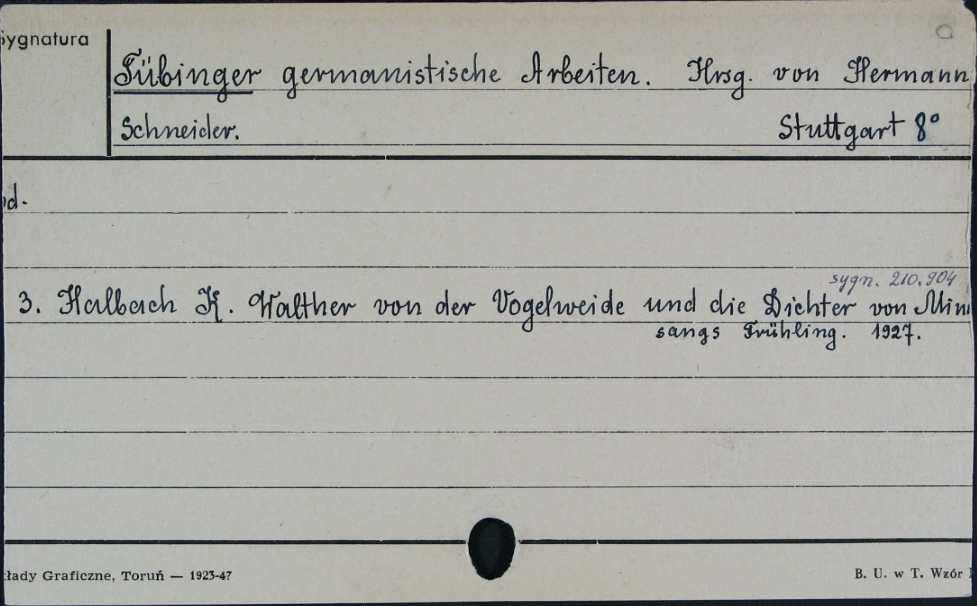 Sygnatura
Tübinger germanistische Arbeiten. Hrsg. von Hermann
Schneider. Stuttgart 8°
od.
sygn. 210.904
3. Halbach K. Walther von der Vogelweide und die Dichter von Min
sangs Frühling. 1927.
kłady Graficzne, Toruń — 1923-47
B. U. w T. Wzór